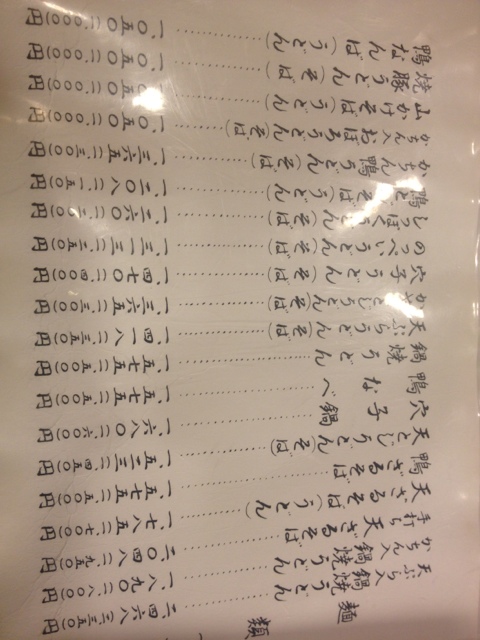 麺類
天ぷら入鍋焼うどん 二、四六八(二、三五〇)円
かちん入鍋焼うどん 一、八九〇(一、八〇〇)円
手打ち天ざるそば 二、〇四八(一、九五〇)円
天ざるそば(うどん) 一、七八五(一、七〇〇)円
鴨ざるそば 一、五七五(一、五〇〇)円
天とじうどん(そば) 一、五二三(一、四五〇)円
穴子鍋 一、六八〇(一、六〇〇)円
鴨なべ 一、五七五(一、五〇〇)円
鍋焼うどん 一、五七五(一、五〇〇)円
天ぷらうどん(そば) 一、四一八(一、三五〇)円
とじうどん(そば) 一、三六五(一、三〇〇)円
穴子うどん(そば) 一、四七〇(一、四〇〇)円
のっぺいうどん(そば) 一、三一三(一、二五〇)円
しっぽくうどん(そば) 一、二六〇(一、二〇〇)円
鴨とじそば(うどん) 一、二〇八(一、一五〇)円
かちん鴨うどん(そば) 一、三六五(一、三〇〇)円
かちん入おぼろうどん(そば) 一、〇五〇(一、〇〇〇)円
山かけそば(うどん) 一、〇五〇(一、〇〇〇)円
焼豚うどん(そば) 一、〇五〇(一、〇〇〇)円
鴨なんば(うどん) 一、〇五〇(一、〇〇〇)円